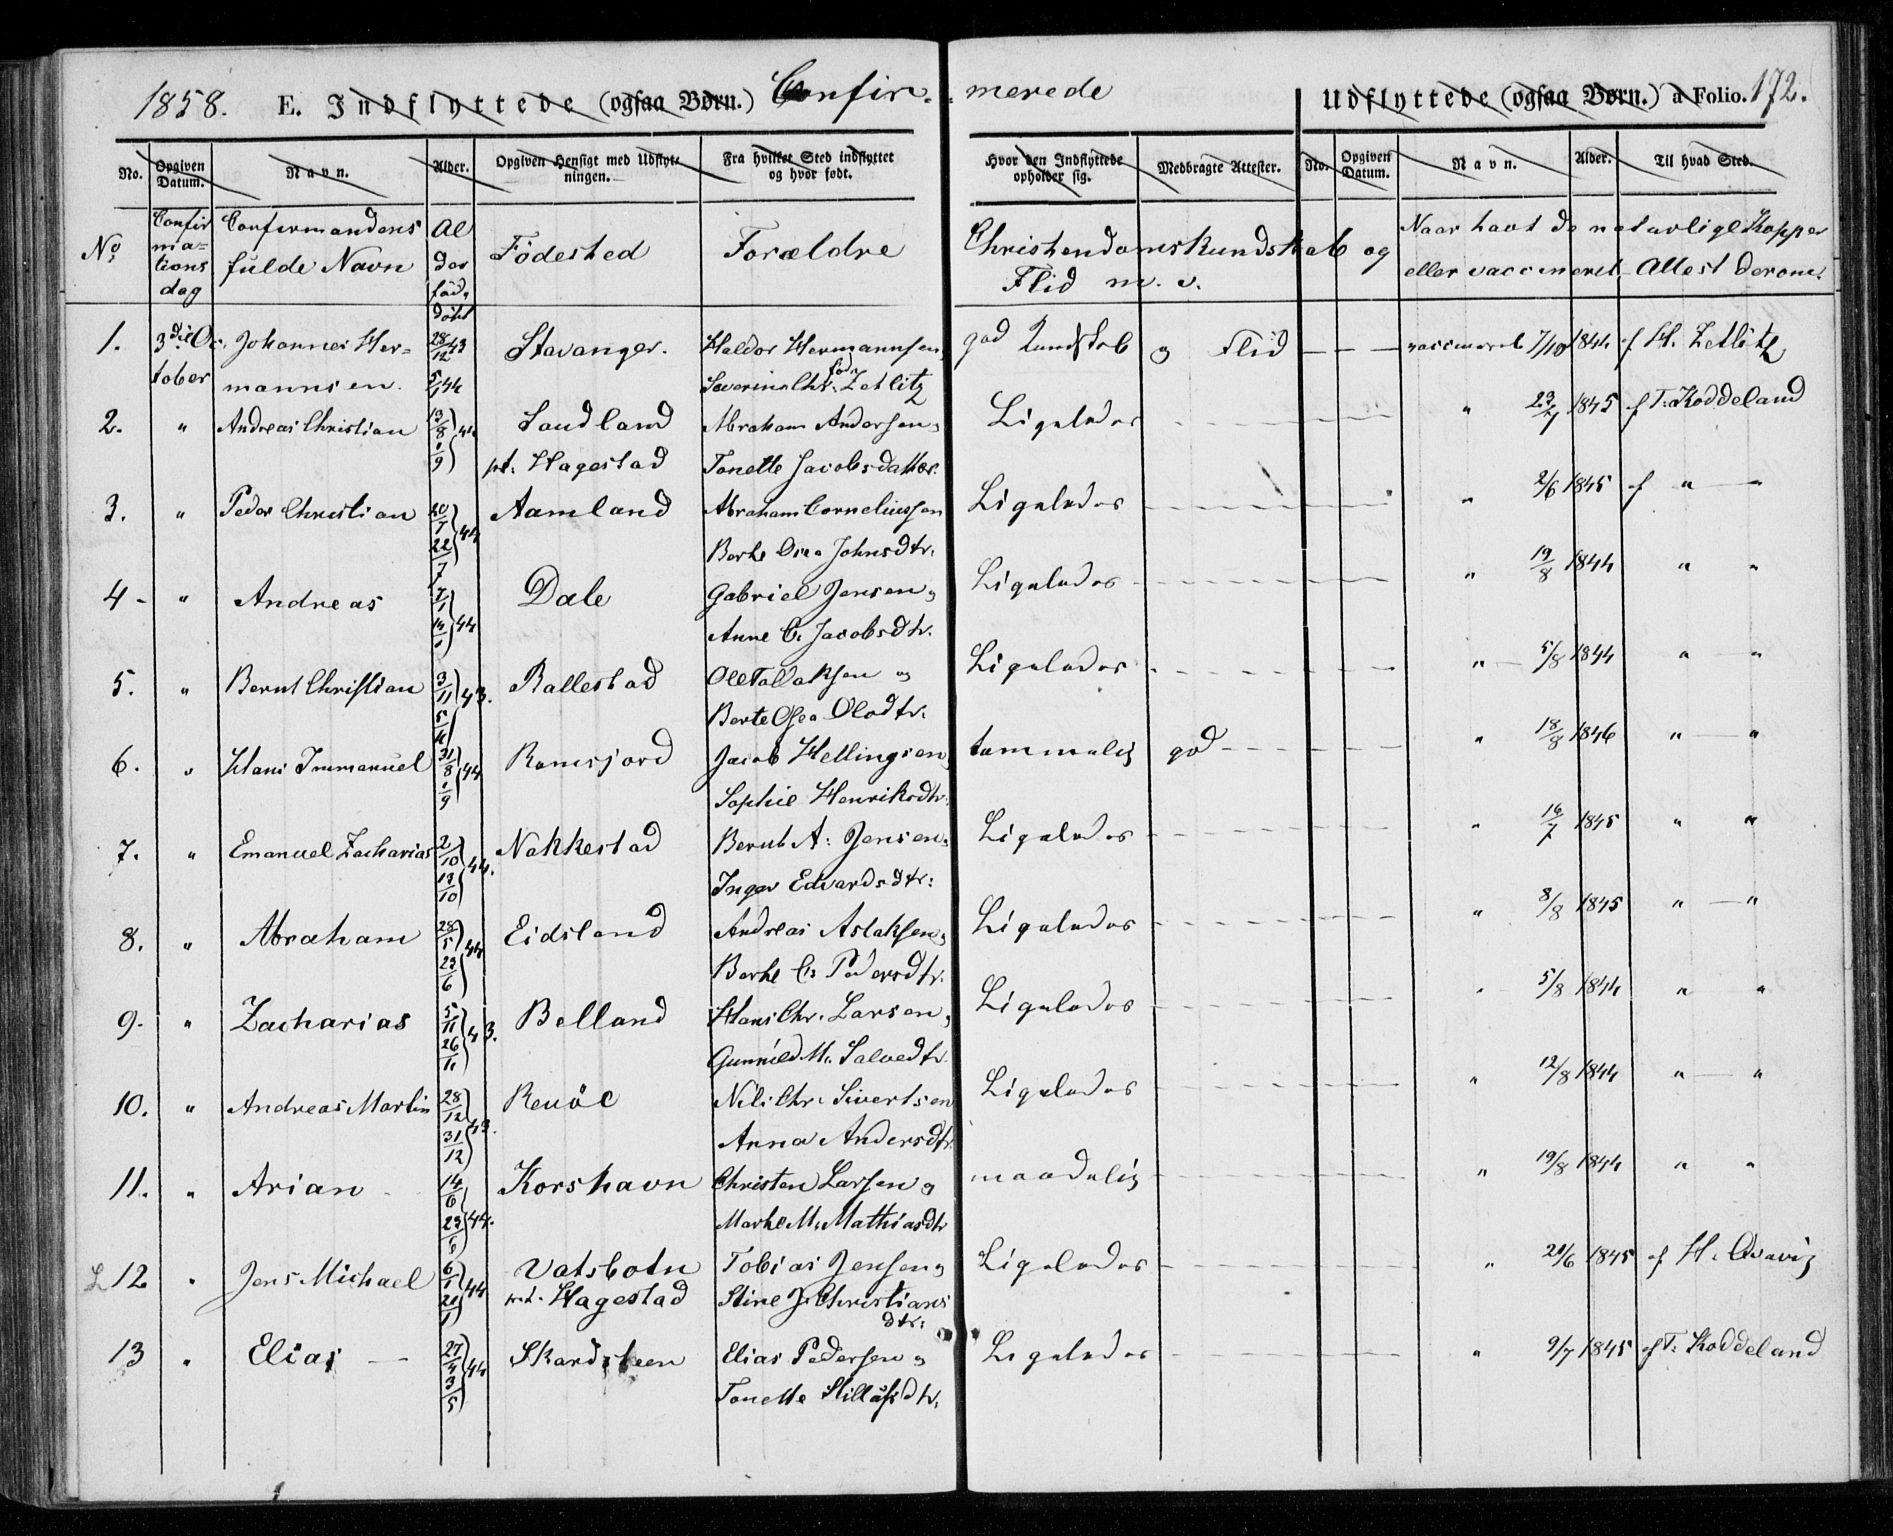 1858. E. Indflyttede (ogsaa Børn.) Confir-merede Udflyttede (ogsaa Børn.) a Folio. 172.
No. Opgiven Datum. Navn. Alder. Opgiven Hensigt med Udflytningen. Fra hvilket Sted indflyttet og hvor født. Hvor den Indflyttede opholder sig. Medbragte Attester. No. Opgiven Datum. Navn. Alder. Til hvad Sted.
No Confirmationsdag Confirmandens fulde Navn Alder Födested Forældre Christendomskundskab og Flid m. v. Naar havt de naturlige Kopper eller vaccineret - Attest derom.
1. 3die Oc. Johannes Her= 28/12 43 Stavanger. Haldor Hermannsen, god Kundskab og Flid - - - vaccineret 7/10 1844 af H. Zetlitz
tober mannsen. 5/4 44 Severine Chr. född Zetlitz
2. " Andreas Christian 13/8 44 Sandland Abraham Andersen, Ligeledes " 23/7 1845 af T. Koddeland
1/9 pt. Hagestad Tonette Jacobsdatter
3. " Peder Christian 20/7 44 Aamland Abraham Corneliussen Ligeledes " 2/6 1845 af " "
22/7 Berte Johnsdtr.
4 - " Andreas 7/1 44 Dale Gabriel Jensen, Ligeledes " 19/8 1844 " "
14/1 Anne C. Jacobsdtr.
5. " Bernt Christian 3/11 43. Rallestad Ole Tallaksen og Ligeledes " 5/8 1844 " "
5/11 Berte Osea Olsdtr.
6. " Hans Immanuel 31/8 44 Ramsjord Jacob Hellingsen, temmelig god " 18/8 1846 " "
1/9 Sophie Henriksdtr.
7. " Emanuel Zacharias 2/10 44. Nakkestad Bernt A: Jensen. Ligeledes " 16/7 1845 " "
13/10 Inger Edvardsdtr:
8. " Abraham 28/5 44 Eidsland Andreas Aslaksen, Ligeledes " 8/8 1845 " "
23/6 Berte C. Pedersdtr.
9. " Zacharias 5/11 43. Belland Hans Chr. Larsen, Ligeledes " 5/8 1844 " "
26/11 Gunnild M. Salvedtr.
10. " Andreas Martin 28/12 43. Renöe Nils Chr. Sivertsen Ligeledes " 12/8 1844 " "
31/12 Anna Andersdtr.
11. " Arian 14/6 44. Korshavn Christen Larsen og maadelig " 19/8 1844 " "
23/6 Marte M. Mathiasdtr
12 " Jens Michael 6/1 44 Vatsbotn Tobias Jensen, Ligeledes " 20/6 1845 af H.
20/1 pt. Hagestad Stine J. Christians
dtr:
13 " Elias - 27/4 44 Skardsteen Elias Pedersen og Ligeledes " 9/7 1845 af T. Koddeland
3/5 Tonette